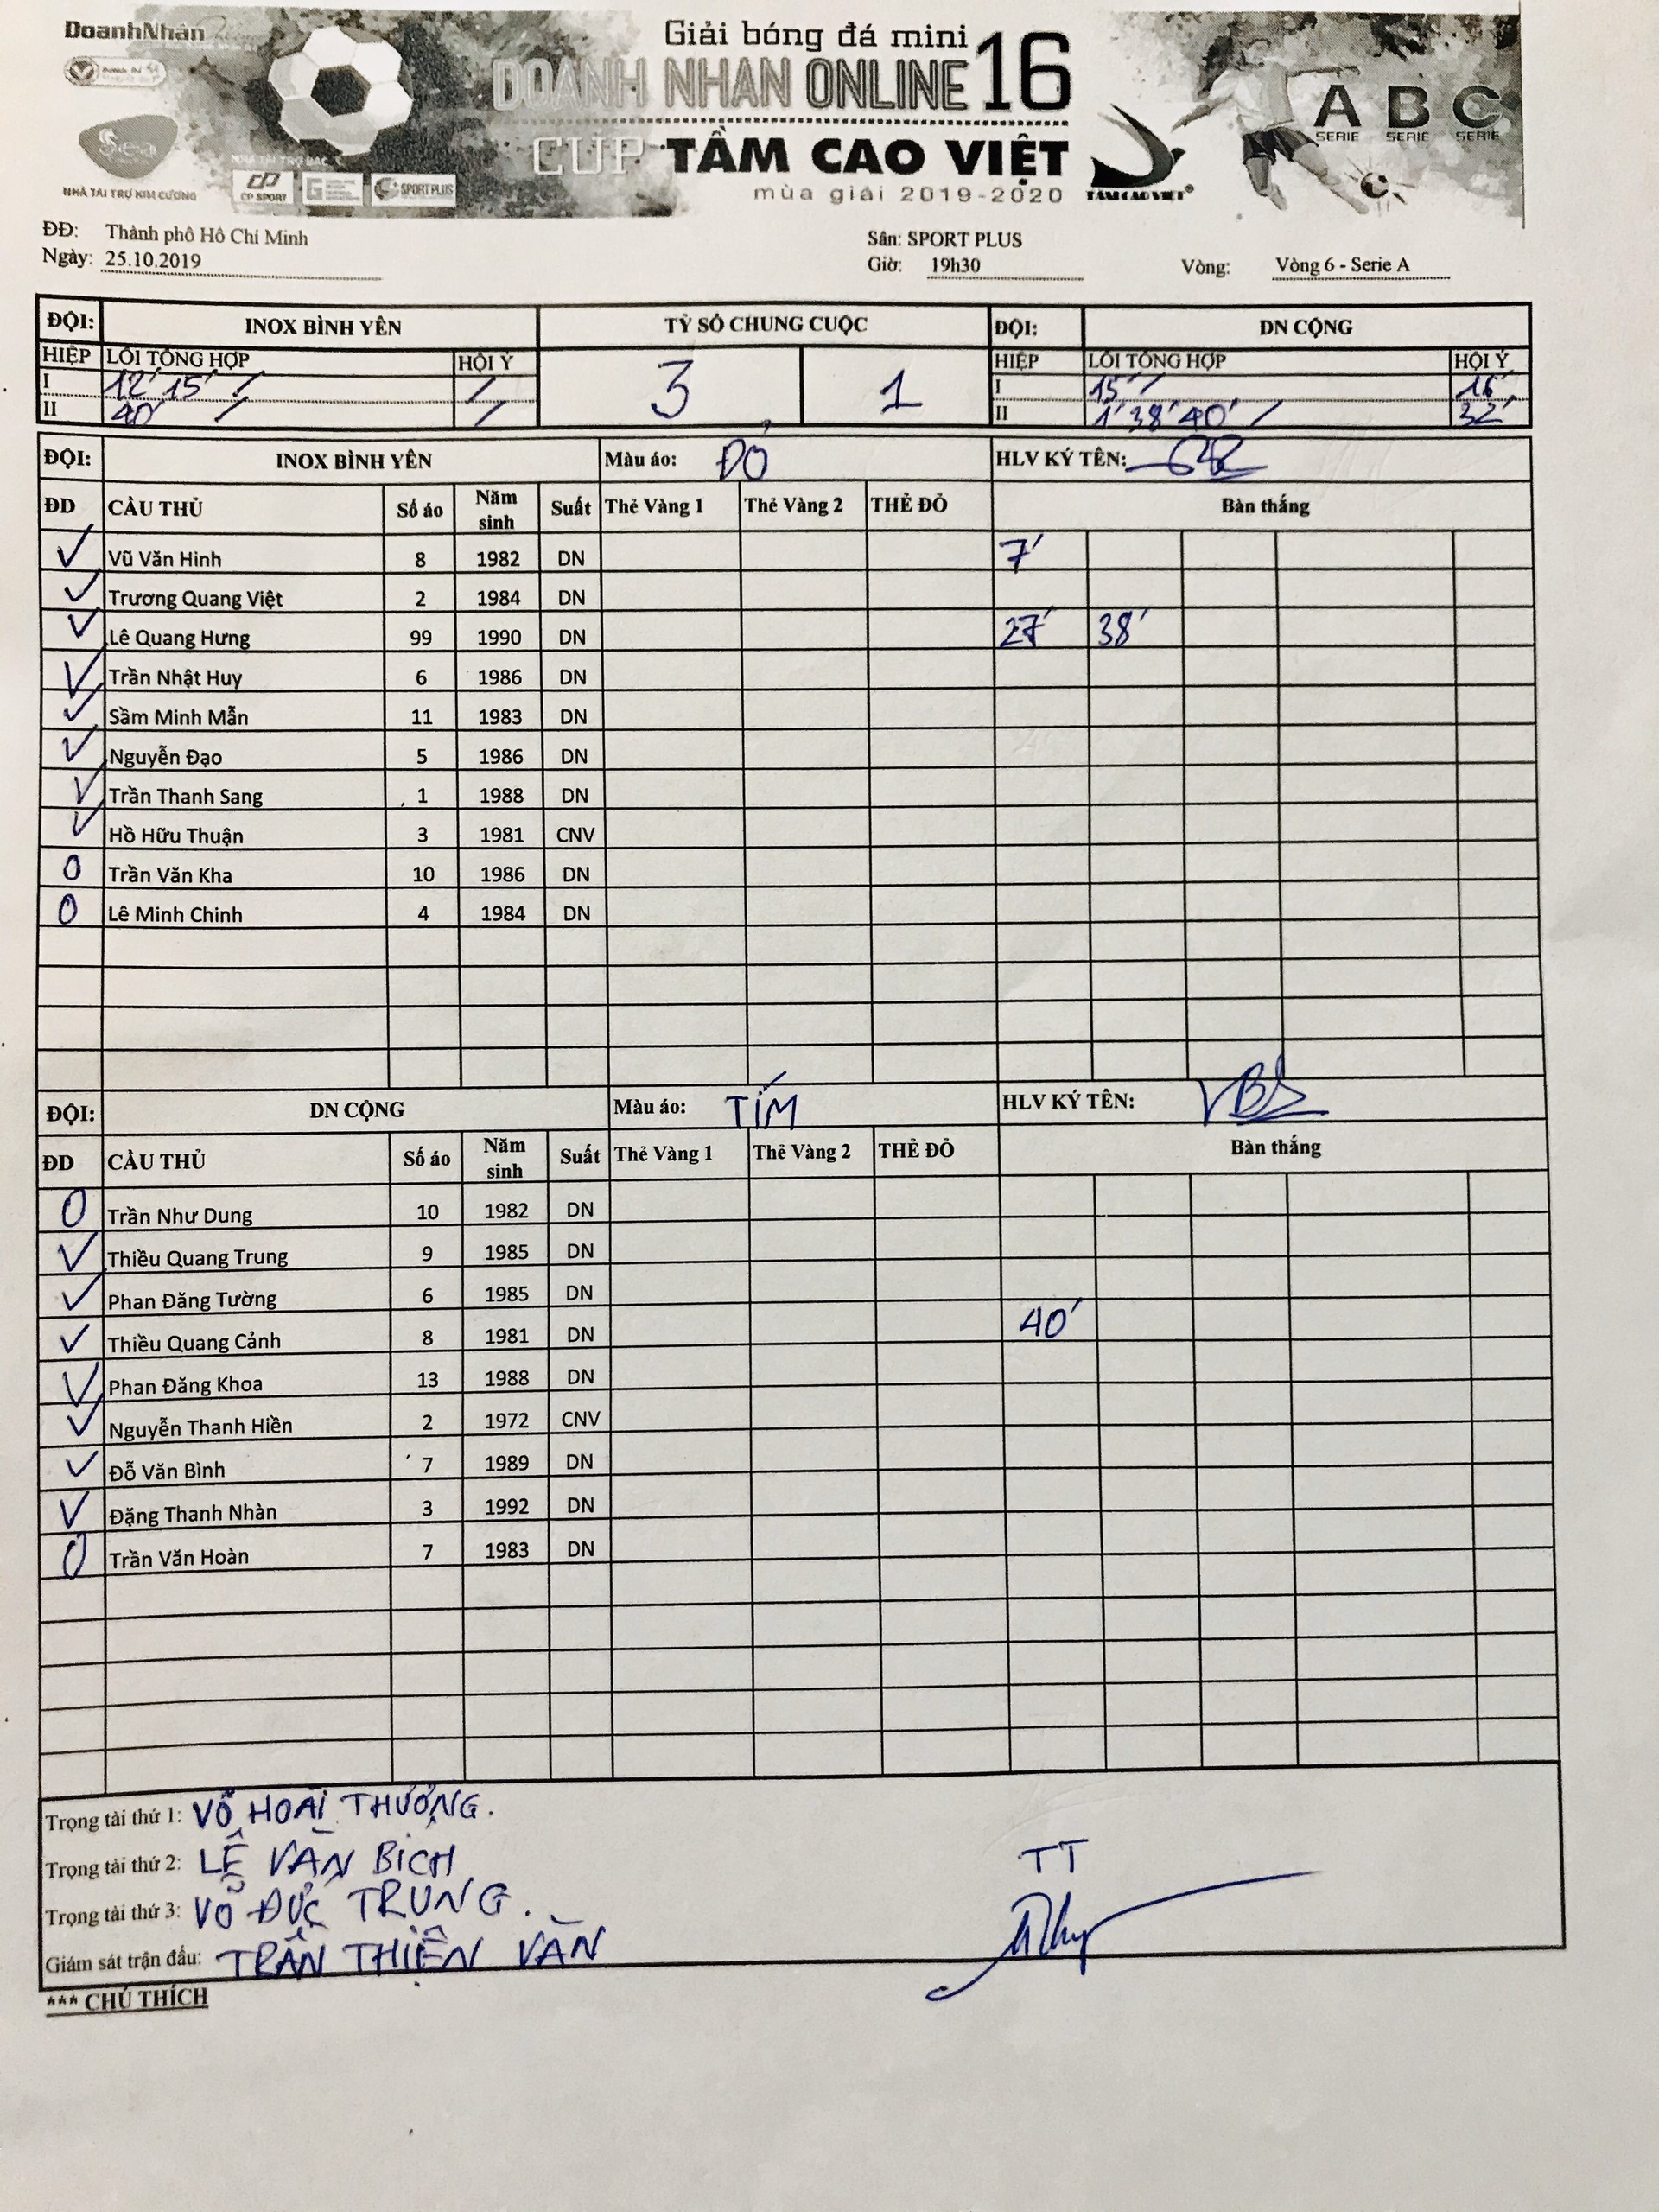 DoanhNhân
Giải bóng đá mini
DOANH NHAN ONLINE 16
CUP TẦM CAO VIỆT
mùa giải 2019-2020
TẦM CAO VIỆT®
A B C
SERIE SERIE SERIE
Sea
NHÀ TÀI TRỢ KIM CƯƠNG
NHÀ TÀI TRỢ BẠC
CP SPORT
SPORT PLUS
ĐĐ: Thành phố Hồ Chí Minh Sân: SPORT PLUS
Ngày: 25.10.2019 Giờ: 19h30 Vòng: Vòng 6 - Serie A
ĐỘI: INOX BÌNH YÊN TỶ SỐ CHUNG CUỘC ĐỘI: DN CỘNG
HIỆP LỖI TỔNG HỢP HỘI Ý 3 1 HIỆP LỖI TỔNG HỢP HỘI Ý
I 12' 15' / / I 15' / 16'
II 40' / / II 1' 38' 40' / 32'
ĐỘI: INOX BÌNH YÊN Màu áo: ĐỎ HLV KÝ TÊN:
ĐD CẦU THỦ Số áo Năm sinh Suất Thẻ Vàng 1 Thẻ Vàng 2 THẺ ĐỎ Bàn thắng
✓ Vũ Văn Hinh 8 1982 DN 7'
✓ Trương Quang Việt 2 1984 DN
✓ Lê Quang Hưng 99 1990 DN 27' 38'
✓ Trần Nhật Huy 6 1986 DN
✓ Sầm Minh Mẫn 11 1983 DN
✓ Nguyễn Đạo 5 1986 DN
✓ Trần Thanh Sang 1 1988 DN
✓ Hồ Hữu Thuận 3 1981 CNV
0 Trần Văn Kha 10 1986 DN
0 Lê Minh Chinh 4 1984 DN
ĐỘI: DN CỘNG Màu áo: TÍM HLV KÝ TÊN:
ĐD CẦU THỦ Số áo Năm sinh Suất Thẻ Vàng 1 Thẻ Vàng 2 THẺ ĐỎ Bàn thắng
0 Trần Như Dung 10 1982 DN
✓ Thiều Quang Trung 9 1985 DN
✓ Phan Đăng Tường 6 1985 DN
✓ Thiều Quang Cảnh 8 1981 DN 40'
✓ Phan Đăng Khoa 13 1988 DN
✓ Nguyễn Thanh Hiền 2 1972 CNV
✓ Đỗ Văn Bình 7 1989 DN
✓ Đặng Thanh Nhàn 3 1992 DN
0 Trần Văn Hoàn 7 1983 DN
Trọng tài thứ 1: VÕ HOÀI THƯƠNG.
Trọng tài thứ 2: LÊ VĂN BÍCH TT
Trọng tài thứ 3: VÕ ĐỨC TRUNG.
Giám sát trận đấu: TRẦN THIỆN VĂN
*** CHÚ THÍCH